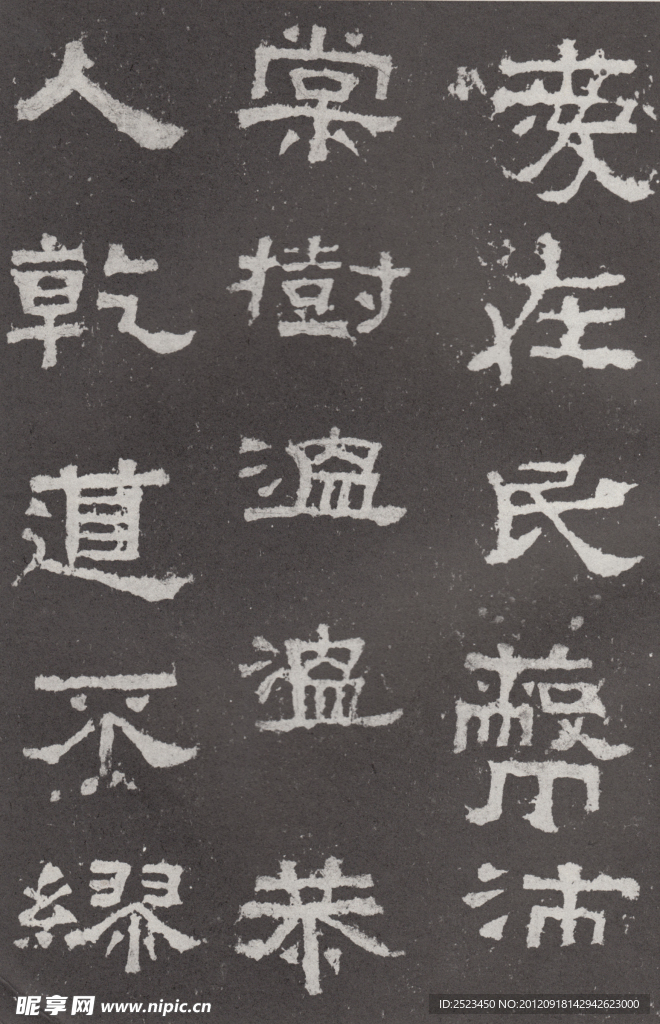 愛在民蔽沛
棠樹温温恭
人乾道不繆
昵享网 www.nipic.cn
ID:2523450 NO:20120918142942623000